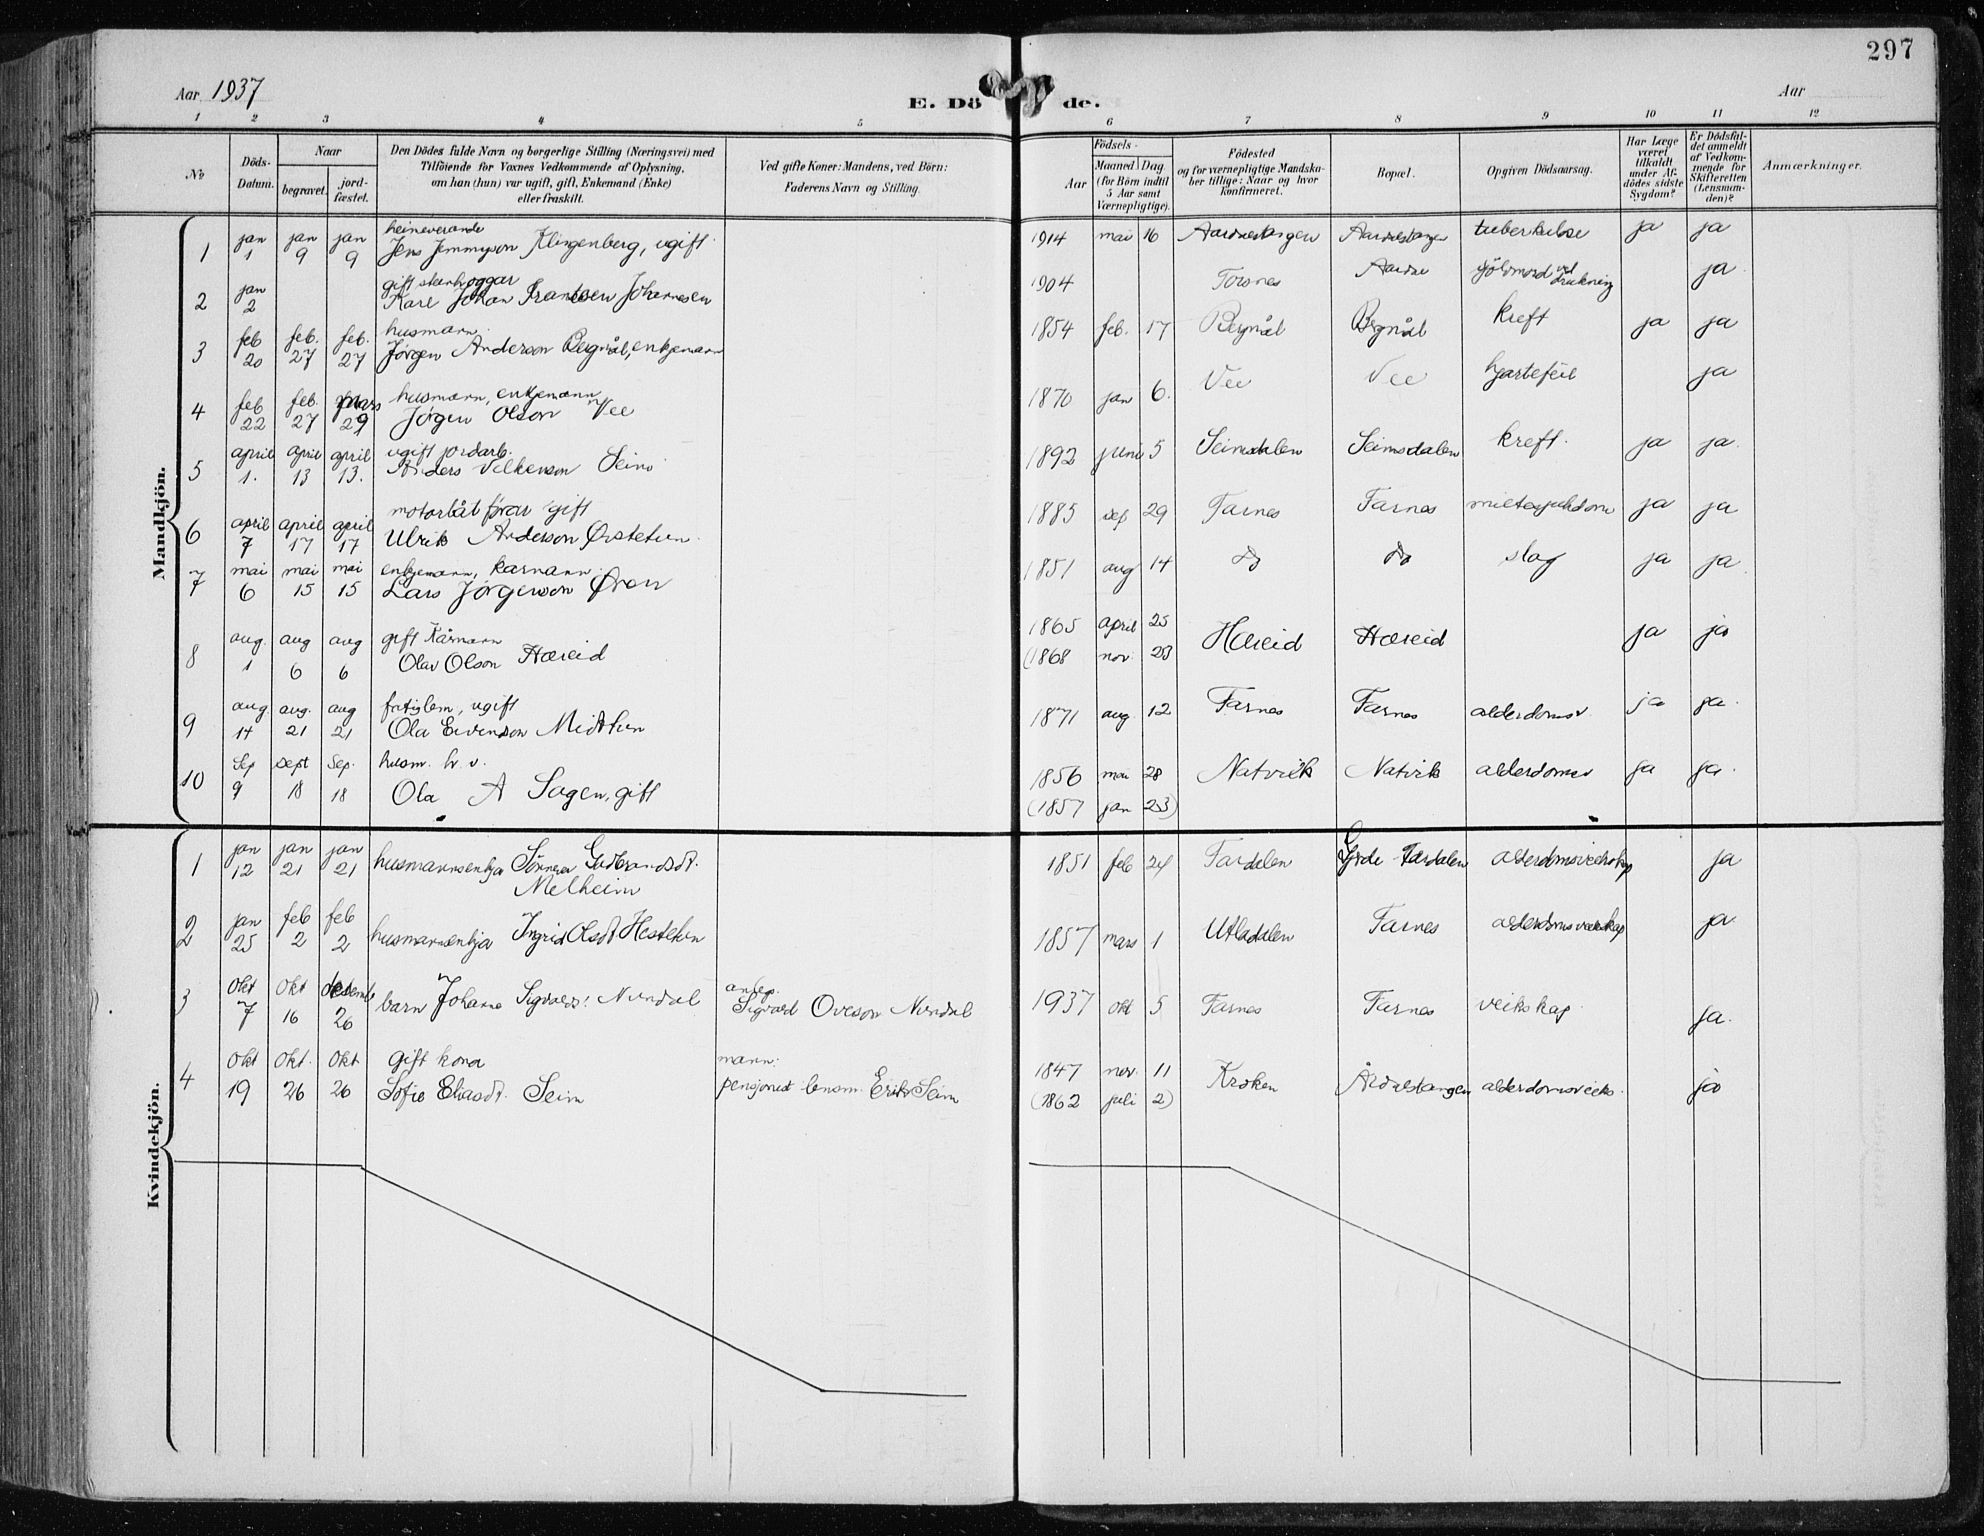 297
Aar 1937
Aar
E. Dö de.
1 2 3 4 5 6 7 8 9 10 11 12
No
Döds-Datum.
Naar
begravet.
jord-fæstet.
Den Dödes fulde Navn og borgerlige Stilling (Næringsvei) med
Tilföiende for Voxnes Vedkommende af Oplysning,
om han (hun) var ugift, gift, Enkemand (Enke)
eller fraskilt.
Ved gifte Koner: Mandens, ved Börn:
Faderens Navn og Stilling.
Födsels-
Aar
Maaned Dag
(for Börn indtil
5 Aar samt
Værnepligtige).
Födested
og for værnepligtige Mandska-
ber tillige: Naar og hvor
konfirmeret.
Bopæl.
Opgiven Dödsaarsag.
Har Læge
været
tilkaldt
under Af-
dödes sidste
Sygdom?
Er Dödsfal-
det anmeldt
af Vedkom-
mende for
Skifteretten
(Lensman-
den)?
Anmærkninger.
Mandkjön.
heimeverande
1 jan 1 jan 9 jan 9 Jens Jemmyson Klingenberg, ugift 1914 mai 16 Aardalstangen Aardalstangen tuberkulose ja ja
gift steinhoggar
2 jan 2 Karl Johan Frantsen Johannesen 1904 Torsnes Aardal sjölvmord ved drukning ja
husmann
3 feb 20 feb. 27 feb. 27 Jørgen Anderson Bergmål, enkjemann 1854 feb. 17 Bergmål Bergmål kreft ja ja
husmann, enkjemann
4 feb 22 feb. 27 mars 29 Jørgen Olson Vee 1870 jan 6. Vee Vee hjartefeil ja
ugift jordarb.
5 april 1. april 13 april 13. Anders Seim 1892 juni 5 Seimsdalen Seimsdalen kreft ja ja.
motorbåtførar gift
6 april 7 april 17 april 17 Ulrik Anderson Øvstetun 1885 sep 29 Farnes Farnes ja ja
enkjemann, kårmann
7 mai 6 mai 15 mai 15 Lars Jørgenson Øren 1851 aug 14 do do slag ja ja
gift kårmann
8 aug. 1 aug 6 aug 6 Olav Olson Hæreid 1865 april 25 Hæreid Hæreid ja ja
(1868 nov. 23
fatiglem, ugift
9 aug. 14 aug. 21 aug 21 Ola Eivindson Midttun 1871 aug. 12 Farnes Farnes alderdomsv. ja ja.
husm. h. v.
10 sep 9 sept 18 sep. 18 Ola A Sagen, gift 1856 mai 28 Natvik Natvik alderdomsv ja ja.
(1857 jan 23)
Kvindekjön.
1 jan 12 jan 21 jan 21 husmannsenkja Sönneva Gudbrandsdt. 1851 feb 24 Fardalen Gjerde Fardalen alderdomsveikskap ja
Melheim
2 jan 25 feb 2 feb 2 husmannsenkja Ingrid Olsdt Hestetun 1857 mars 1 Utladalen Farnes alderdomsveikskap ja
3 okt 7 okt 16 desemb 26 barn Johanna Sigvaldsd. Nundal anleg. 1937 okt 5 Farnes Farnes veikskap. ja.
Sigvald Oveson Nundal
gift kona mann:
4 okt 19 okt. 26 okt 26 Sofie Eliasdt. Seim pensjonert lensm. Erik Seim 1847 nov. 11 Kroken Årdalstangen alderdomsveiks. ja
(1862 juli 2)